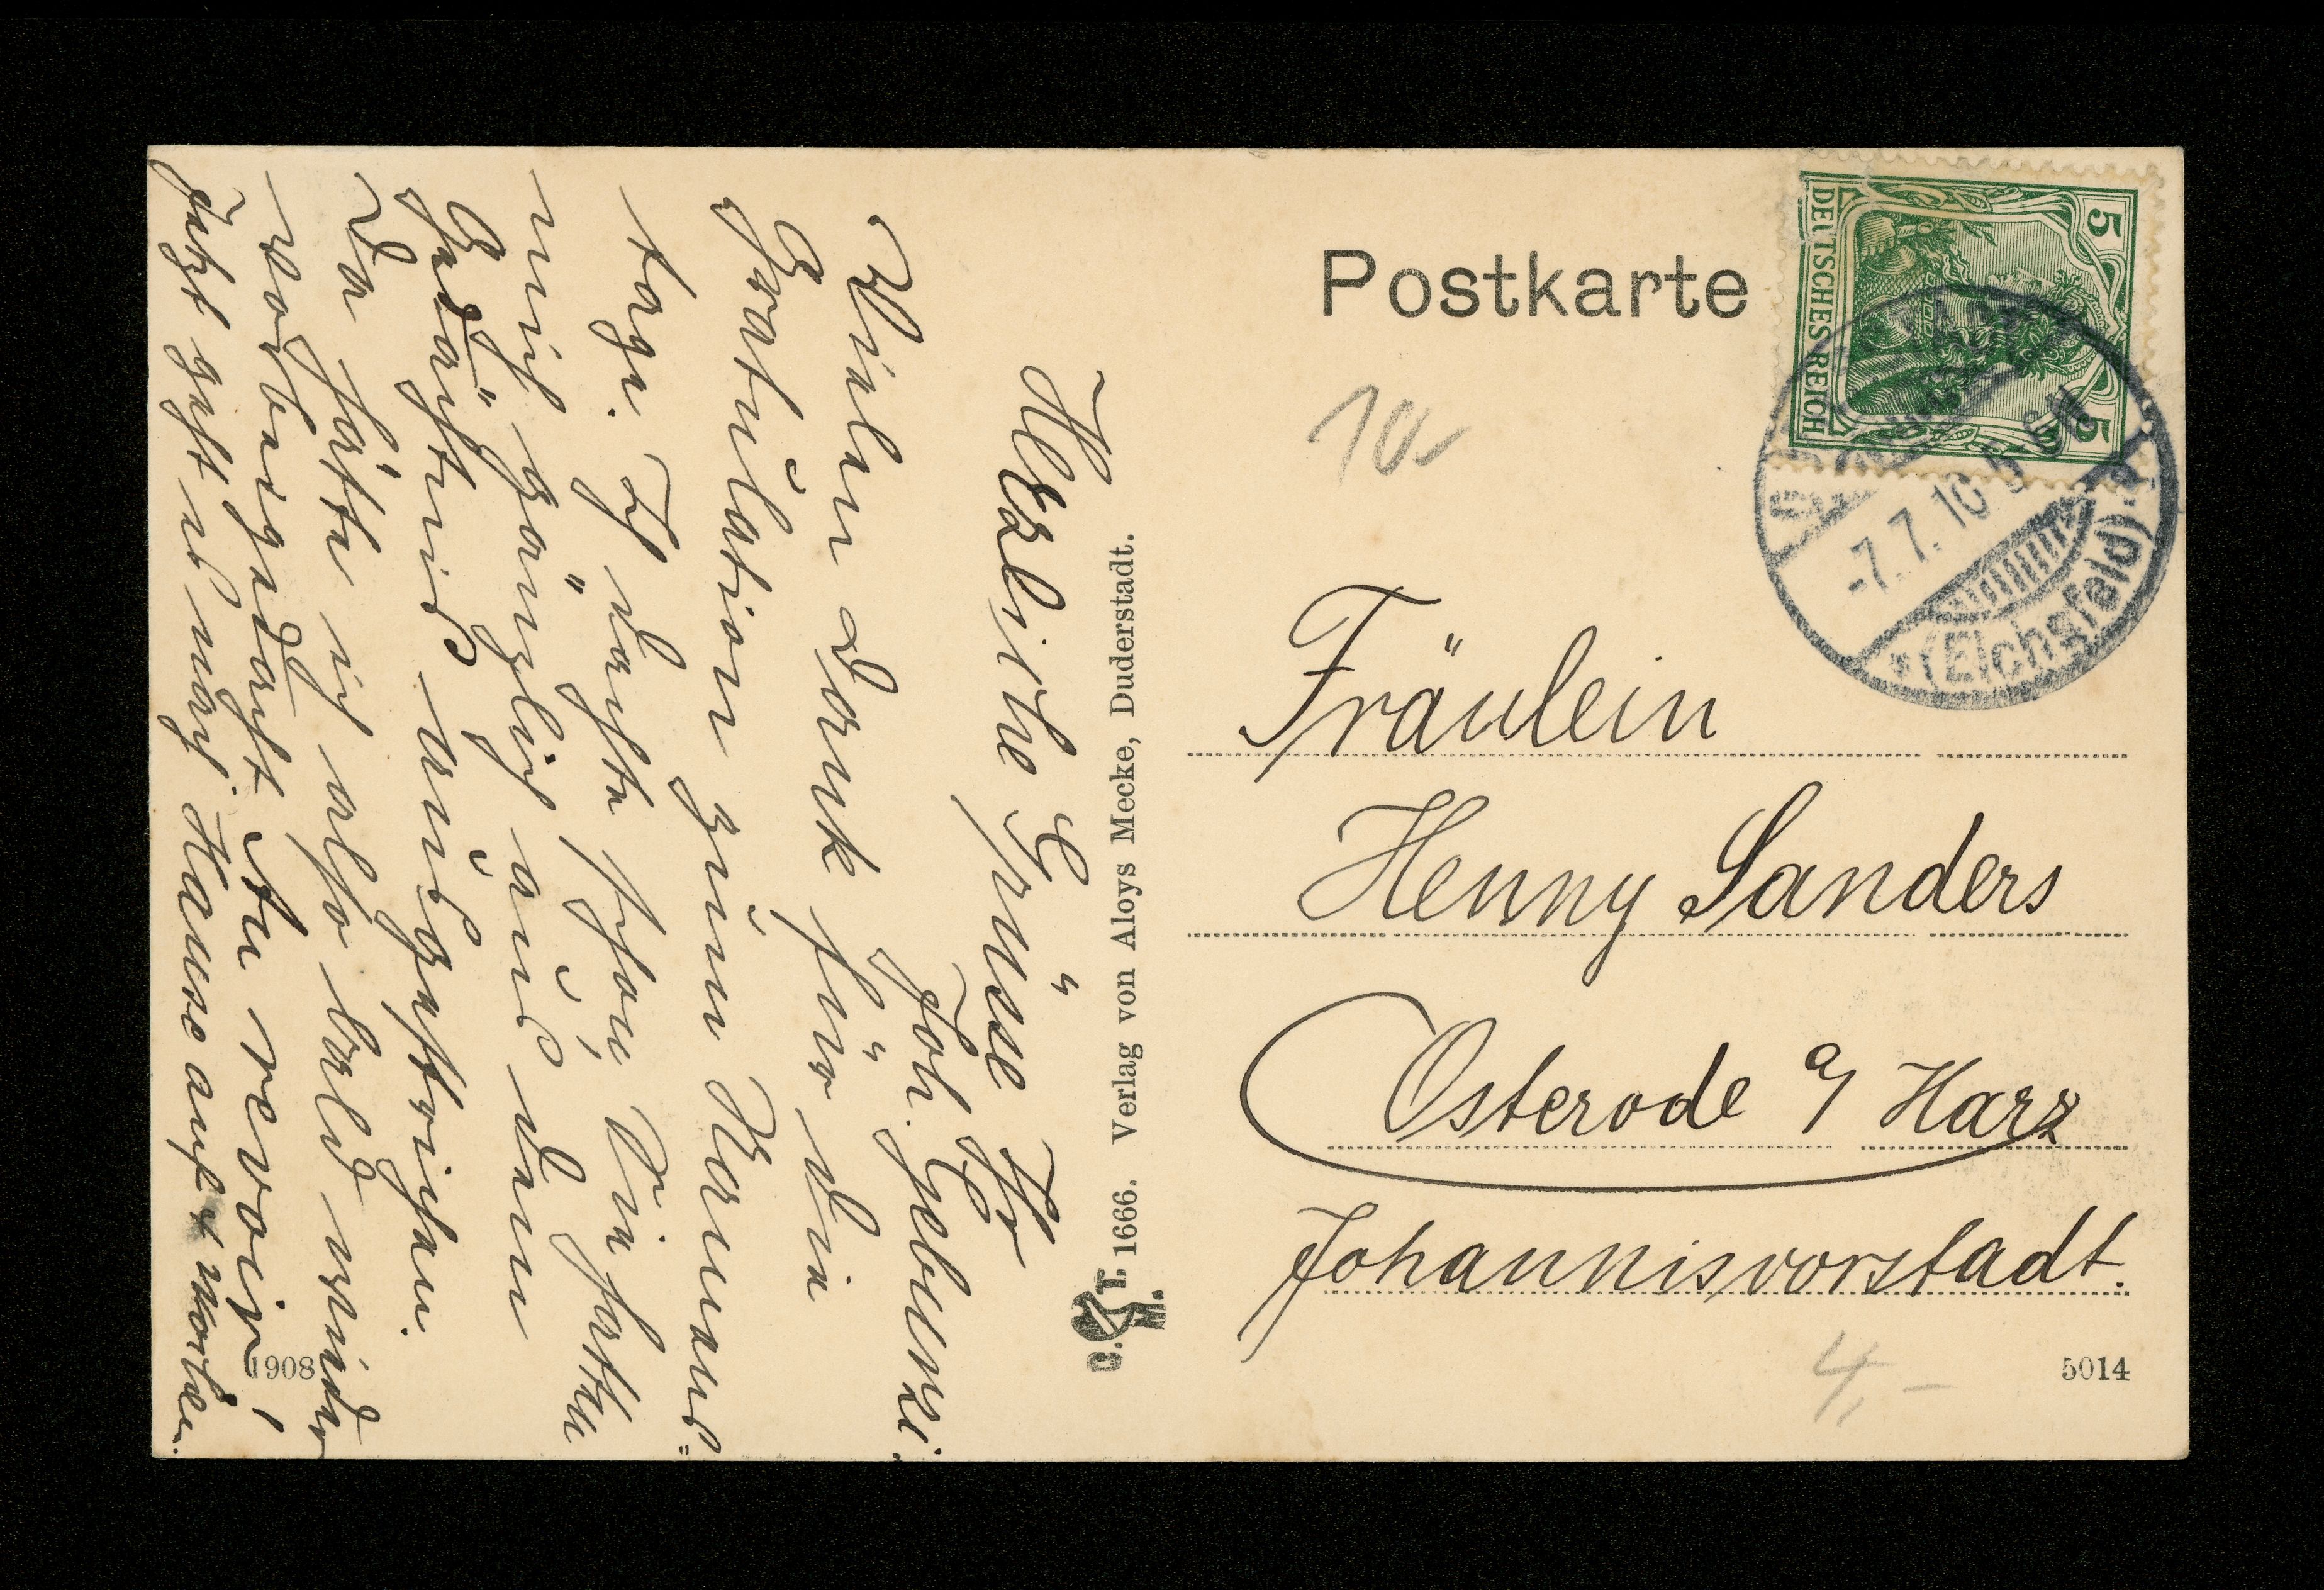 Postkarte
DEUTSCHES REICH
5 5
-7.7.10.
* (Eichsfeld).
10.-
Fräulein
Henny Sanders
Osterode a/ Harz
Johannisvorstadt.
4,-
5014
C. T. H. 1666. Verlag von Aloys Mecke, Duderstadt.
Herzliche Grüsse Ihr
Joh.
Vielen Dank für die
Gratulation zum Namens=
tage. Ich dachte schon, Sie hatten
mich gänzlich aus dem
Gedächtnis ausgestrichen.
Da hätte ich also bald wieder
vorbeigedacht Au revoir!
Jetzt geht es nach Hause auf Wochen.
1908